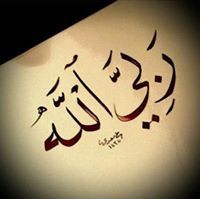 رَبِّيَ ٱللَّه